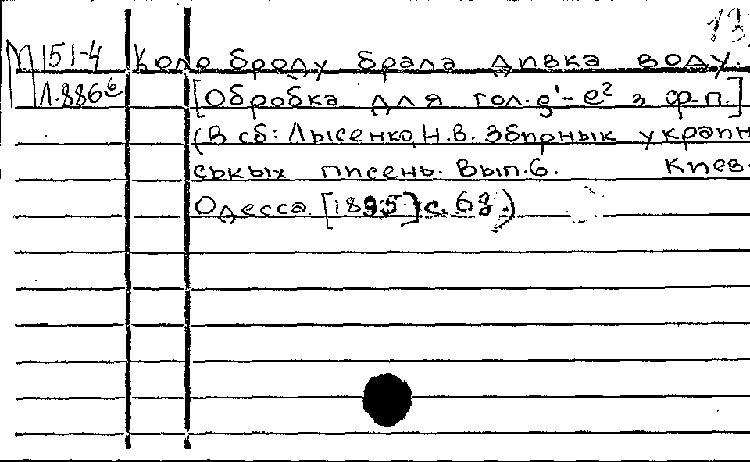 13
М 151-4 Коло броду брала дивка воду.
Л.886б [Обробка для гол. g¹-e² з ф-п.]
(В сб: Лысенко, Н.В. Збирнык украин
ськых писень. Вып.6. Киев-
Одесса. [1895] с. 63.)